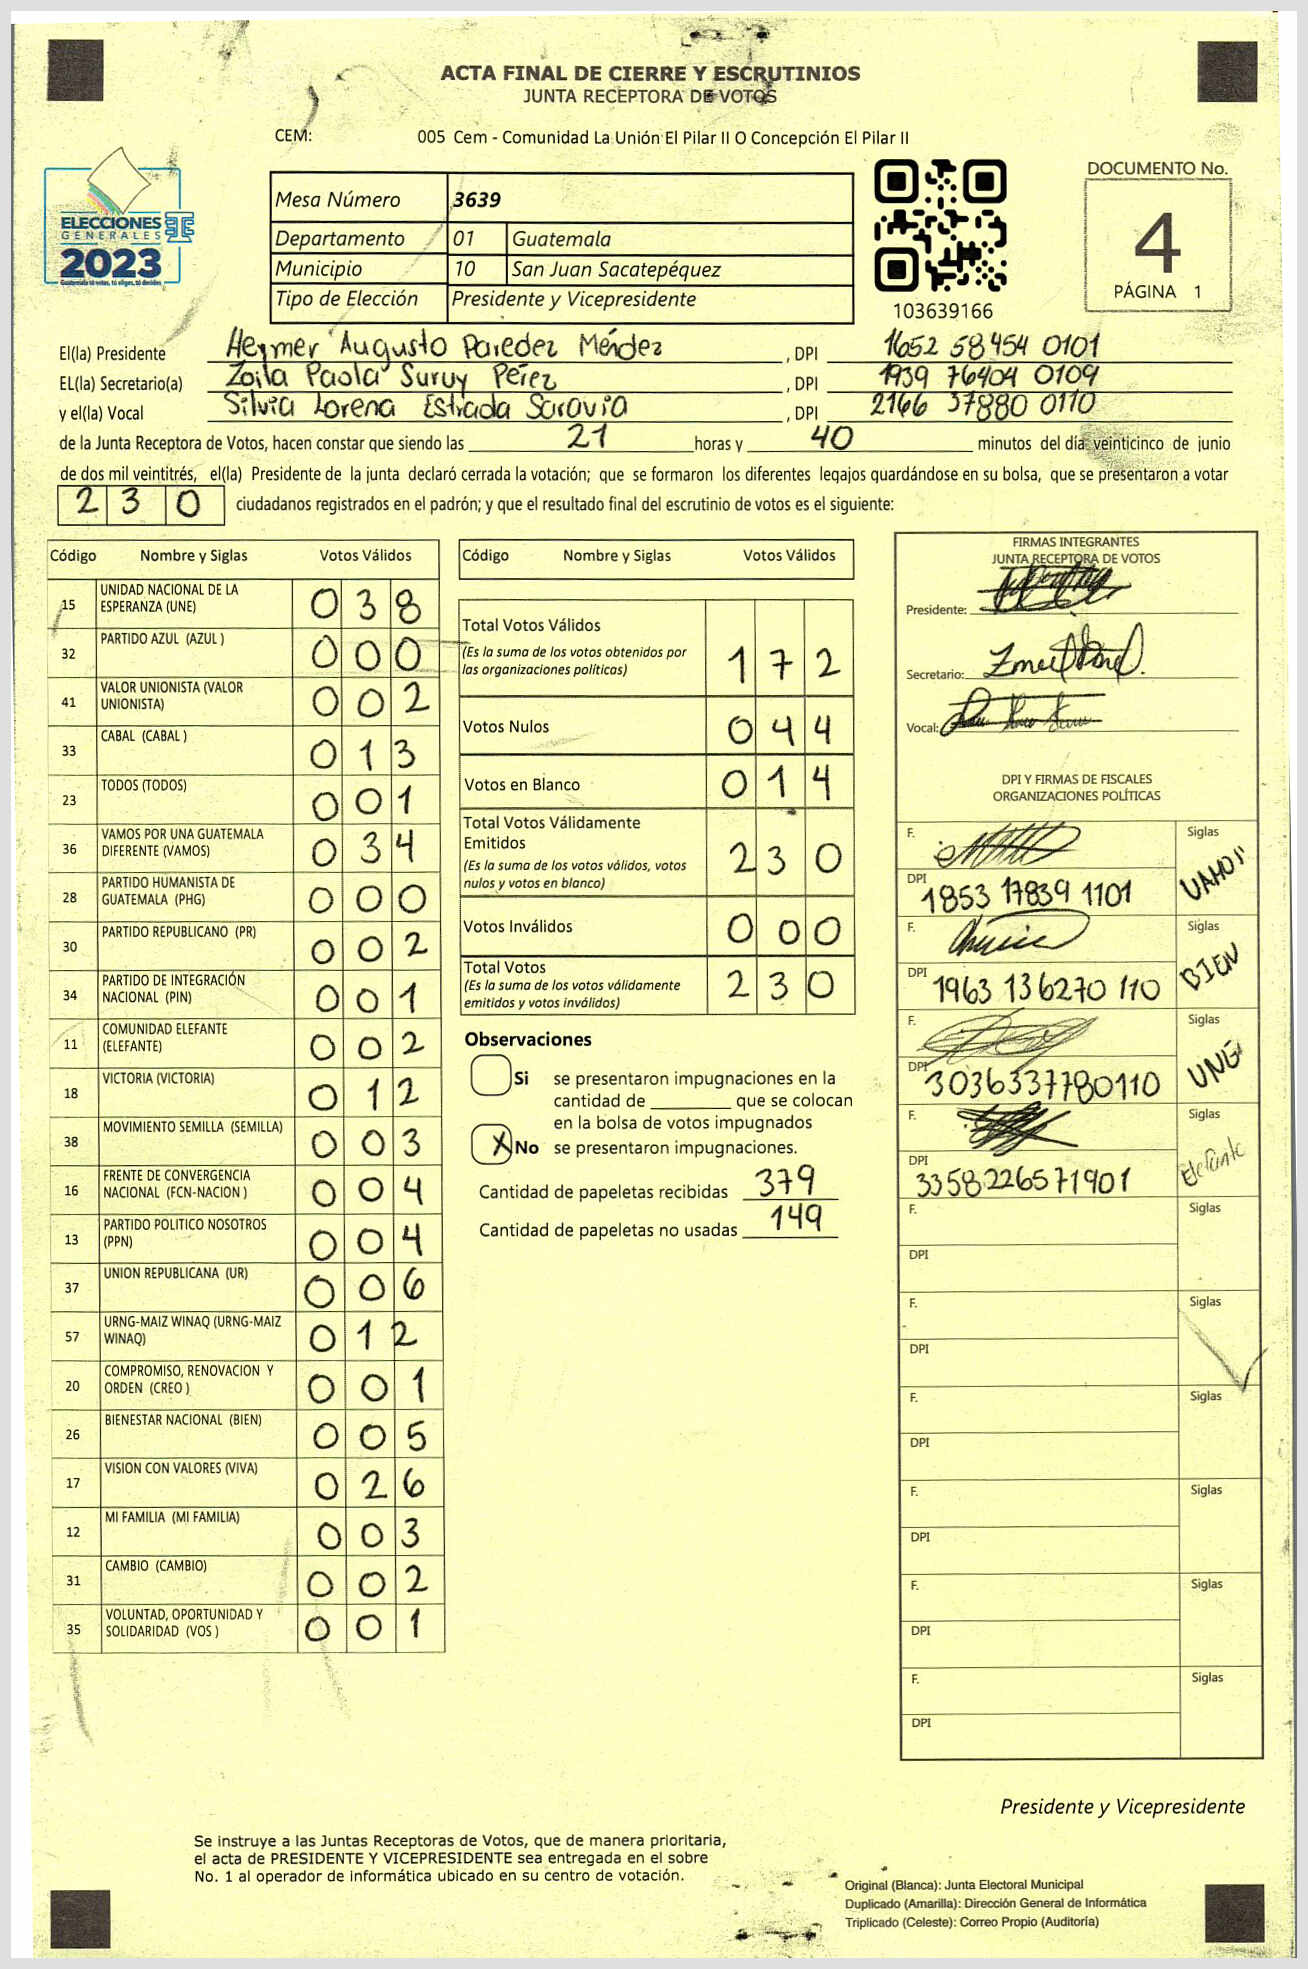 ACTA FINAL DE CIERRE Y ESCRUTINIOS
JUNTA RECEPTORA DE VOTOS
CEM: 005 Cem - Comunidad La Unión El Pilar II O Concepción El Pilar II
ELECCIONES
GENERALES TSE
2023
DOCUMENTO No.
4
PÁGINA 1
Mesa Número 3639
Departamento 01 Guatemala
Municipio 10 San Juan Sacatepéquez
Tipo de Elección Presidente y Vicepresidente
103639166
El(la) Presidente Heymer Augusto Paredez Méndez , DPI 1652 58454 0101
EL(la) Secretario(a) Zoila Paola Suruy Pérez , DPI 1939 76404 0109
y el(la) Vocal Silvia Lorena Estrada Saravia , DPI 2166 37880 0110
de la Junta Receptora de Votos, hacen constar que siendo las 21 horas y 40 minutos del día veinticinco de junio
de dos mil veintitrés, el(la) Presidente de la junta declaró cerrada la votación; que se formaron los diferentes legajos guardándose en su bolsa, que se presentaron a votar
230 ciudadanos registrados en el padrón; y que el resultado final del escrutinio de votos es el siguiente:
Código Nombre y Siglas Votos Válidos
15 UNIDAD NACIONAL DE LA ESPERANZA (UNE) 038
32 PARTIDO AZUL (AZUL ) 000
41 VALOR UNIONISTA (VALOR UNIONISTA) 002
33 CABAL (CABAL ) 013
23 TODOS (TODOS) 001
36 VAMOS POR UNA GUATEMALA DIFERENTE (VAMOS) 034
28 PARTIDO HUMANISTA DE GUATEMALA (PHG) 000
30 PARTIDO REPUBLICANO (PR) 002
34 PARTIDO DE INTEGRACIÓN NACIONAL (PIN) 001
11 COMUNIDAD ELEFANTE (ELEFANTE) 002
18 VICTORIA (VICTORIA) 012
38 MOVIMIENTO SEMILLA (SEMILLA) 003
16 FRENTE DE CONVERGENCIA NACIONAL (FCN-NACION ) 004
13 PARTIDO POLITICO NOSOTROS (PPN) 004
37 UNION REPUBLICANA (UR) 006
57 URNG-MAIZ WINAQ (URNG-MAIZ WINAQ) 012
20 COMPROMISO, RENOVACION Y ORDEN (CREO ) 001
26 BIENESTAR NACIONAL (BIEN) 005
17 VISION CON VALORES (VIVA) 026
12 MI FAMILIA (MI FAMILIA) 003
31 CAMBIO (CAMBIO) 002
35 VOLUNTAD, OPORTUNIDAD Y SOLIDARIDAD (VOS ) 001
Código Nombre y Siglas Votos Válidos
Total Votos Válidos 172
(Es la suma de los votos obtenidos por
las organizaciones políticas)
Votos Nulos 044
Votos en Blanco 014
Total Votos Válidamente
Emitidos 230
(Es la suma de los votos válidos, votos
nulos y votos en blanco)
Votos Inválidos 000
Total Votos 230
(Es la suma de los votos válidamente
emitidos y votos inválidos)
Observaciones
Si se presentaron impugnaciones en la
cantidad de ________ que se colocan
en la bolsa de votos impugnados
X No se presentaron impugnaciones.
Cantidad de papeletas recibidas 379
Cantidad de papeletas no usadas 149
FIRMAS INTEGRANTES
JUNTA RECEPTORA DE VOTOS
Presidente:
Secretario:
Vocal:
DPI Y FIRMAS DE FISCALES
ORGANIZACIONES POLÍTICAS
F. Siglas VAMOS
DPI 1853 17839 1101
F. Siglas BIEN
DPI 1963 136270 110
F. Siglas UNE
DPI 3036337780110
F. Siglas Elefante
DPI 3358226571901
F. Siglas
DPI
F. Siglas
DPI
F. Siglas
DPI
F. Siglas
DPI
F. Siglas
DPI
F. Siglas
DPI
Presidente y Vicepresidente
Se instruye a las Juntas Receptoras de Votos, que de manera prioritaria,
el acta de PRESIDENTE Y VICEPRESIDENTE sea entregada en el sobre
No. 1 al operador de informática ubicado en su centro de votación.
Original (Blanca): Junta Electoral Municipal
Duplicado (Amarilla): Dirección General de Informática
Triplicado (Celeste): Correo Propio (Auditoría)